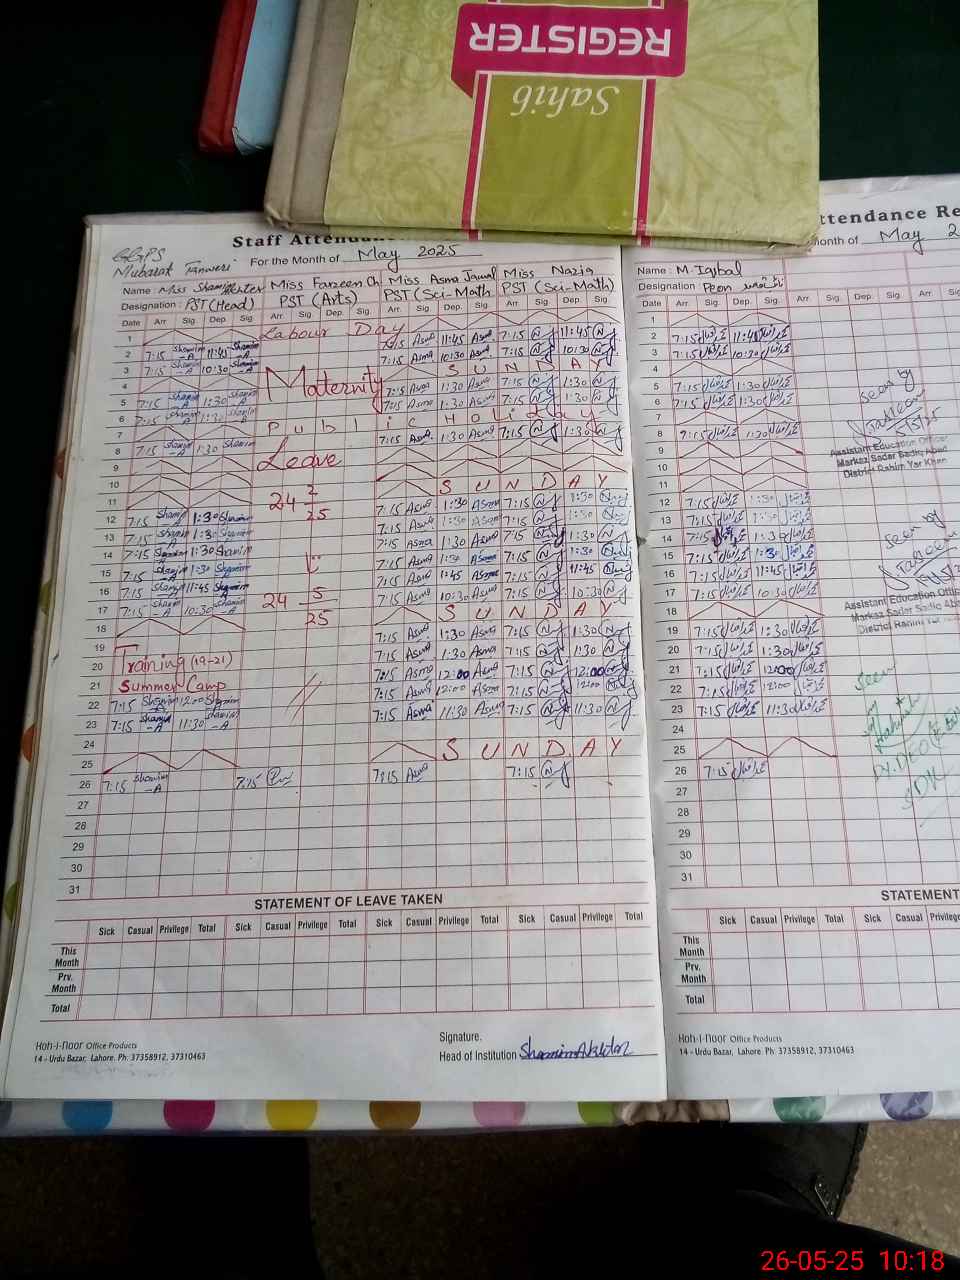 REGISTER
Sahib
Staff Attendanc
For the Month of May 2025
GGPS
Mubarak Tanweri
Name: Miss Shamim Akhter Miss Farzeen Ch Miss Asma Jamal Miss Nazia
Designation: PST (Head) PST (Arts) PST (Sci-Math) PST (Sci-Math)
Date Arr. Sig. Dep. Sig. Arr. Sig. Dep. Sig. Arr. Sig. Dep. Sig. Arr. Sig. Dep. Sig.
1 Labour Day
2 7:15 Shamim-A 11:45 Shamim-A 7:15 Asma 11:45 Asma 7:15 N 11:45 N
3 7:15 Shamim-A 10:30 Shamim-A 7:15 Asma 10:30 Asma 7:15 N 10:30 N
4 SUNDAY
Maternity
5 7:15 Shamim-A 1:30 Shamim-A 7:15 Asma 1:30 Asma 7:15 N 1:30 N
6 7:15 Shamim-A 1:30 Shamim 7:15 Asma 1:30 Asma 7:15 N 1:30 N
7 Public Holiday
8 7:15 Shamim-A 1:30 Shamim 7:15 Asma 1:30 Asma 7:15 N 1:30 N
Leave
9
10
11 SUNDAY
24 2/25
12 7:15 Shamim-A 1:30 Shamim 7:15 Asma 1:30 Asma 7:15 N 1:30 N
13 7:15 Shamim-A 1:30 Shamim 7:15 Asma 1:30 Asma 7:15 N 1:30 N
14 7:15 Shamim 1:30 Shamim 7:15 Asma 1:30 Asma 7:15 N 1:30 N
15 7:15 Shamim-A 1:30 Shamim 7:15 Asma 1:30 Asma 7:15 N 1:30 N
16 7:15 Shamim-A 11:45 Shamim-A 7:15 Asma 1:45 Asma 7:15 N 11:45 N
17 7:15 Shamim-A 10:30 Shamim-A 7:15 Asma 10:30 Asma 7:15 N 10:30 N
24 5/25
18 SUNDAY
19 7:15 Asma 1:30 Asma 7:15 N 1:30 N
20 Training (19-21) 7:15 Asma 1:30 Asma 7:15 N 1:30 N
21 Summer Camp 7:15 Asma 12:00 Asma 7:15 N 12:00 N
22 7:15 Shamim-A 12:00 Shamim 7:15 Asma 12:00 Asma 7:15 N 12:00 N
23 7:15 Shamim-A 11:30 Shamim-A 7:15 Asma 11:30 Asma 7:15 N 11:30 N
24
25 SUNDAY
26 7:15 Shamim-A 7:15 7:15 Asma 7:15 N
27
28
29
30
31
STATEMENT OF LEAVE TAKEN
Sick Casual Privilege Total Sick Casual Privilege Total Sick Casual Privilege Total Sick Casual Privilege Total
This Month
Prv. Month
Total
Koh-i-noor Office Products
14 - Urdu Bazar, Lahore. Ph: 37358912, 37310463
Signature.
Head of Institution Shamim Akhtar
ttendance Re
onth of May 2
Name: M. Iqbal
Designation Peon نائب قاصد
Date Arr. Sig. Dep. Sig. Arr. Sig. Dep. Sig. Arr. Sig.
1
2 7:15 11:45
3 7:15 10:30
4
5 7:15 1:30
6 7:15 1:30
7
8 7:15 1:30
9
10
11
12 7:15 1:30
13 7:15 1:30
14 7:15 1:30
15 7:15 1:30
16 7:15 11:45
17 7:15 10:30
18
19 7:15 1:30
20 7:15 1:30
21 7:15 12:00
22 7:15 12:00
23 7:15 11:30
24
25
26 7:15
27
28
29
30
31
Seen by
Assistant Education Officer
Markaz Sadar Sadiq Abad
District Rahim Yar Khan
Seen by
Assistant Education Offic
Markaz Sadar Sadiq Aba
District Rahim Yar
Seen
STATEMENT
Sick Casual Privilege Total Sick Casual Privilege
This Month
Prv. Month
Total
Koh-i-noor Office Products
14 - Urdu Bazar, Lahore. Ph: 37358912, 37310463
26-05-25 10:18